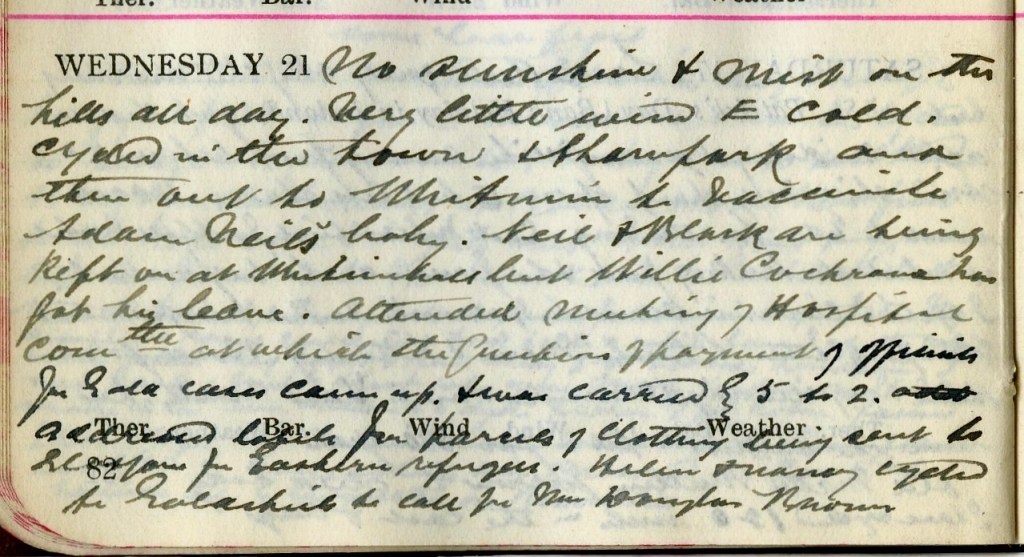 Ther. Bar. Wind Weather
WEDNESDAY 21 No sunshine & mist on the
hills all day. Very little wind E cold.
Cycled in the town & Sharnpark and
then out to to vaccinate
Adam Neil's baby. Neil & Black are being
kept on at but Willie Cochrane has
got his leave. Attended meeting of Hospital
Comttee at which the question of payment of officials
for cases came up. & was carried by 5 to 2.
addressed labels for parcels of clothing being sent to
Ther. Bar. Wind Weather
82
for Eastern refugees. Helen & Nancy cycled
to Galashiels to call for Mrs Douglas Brown